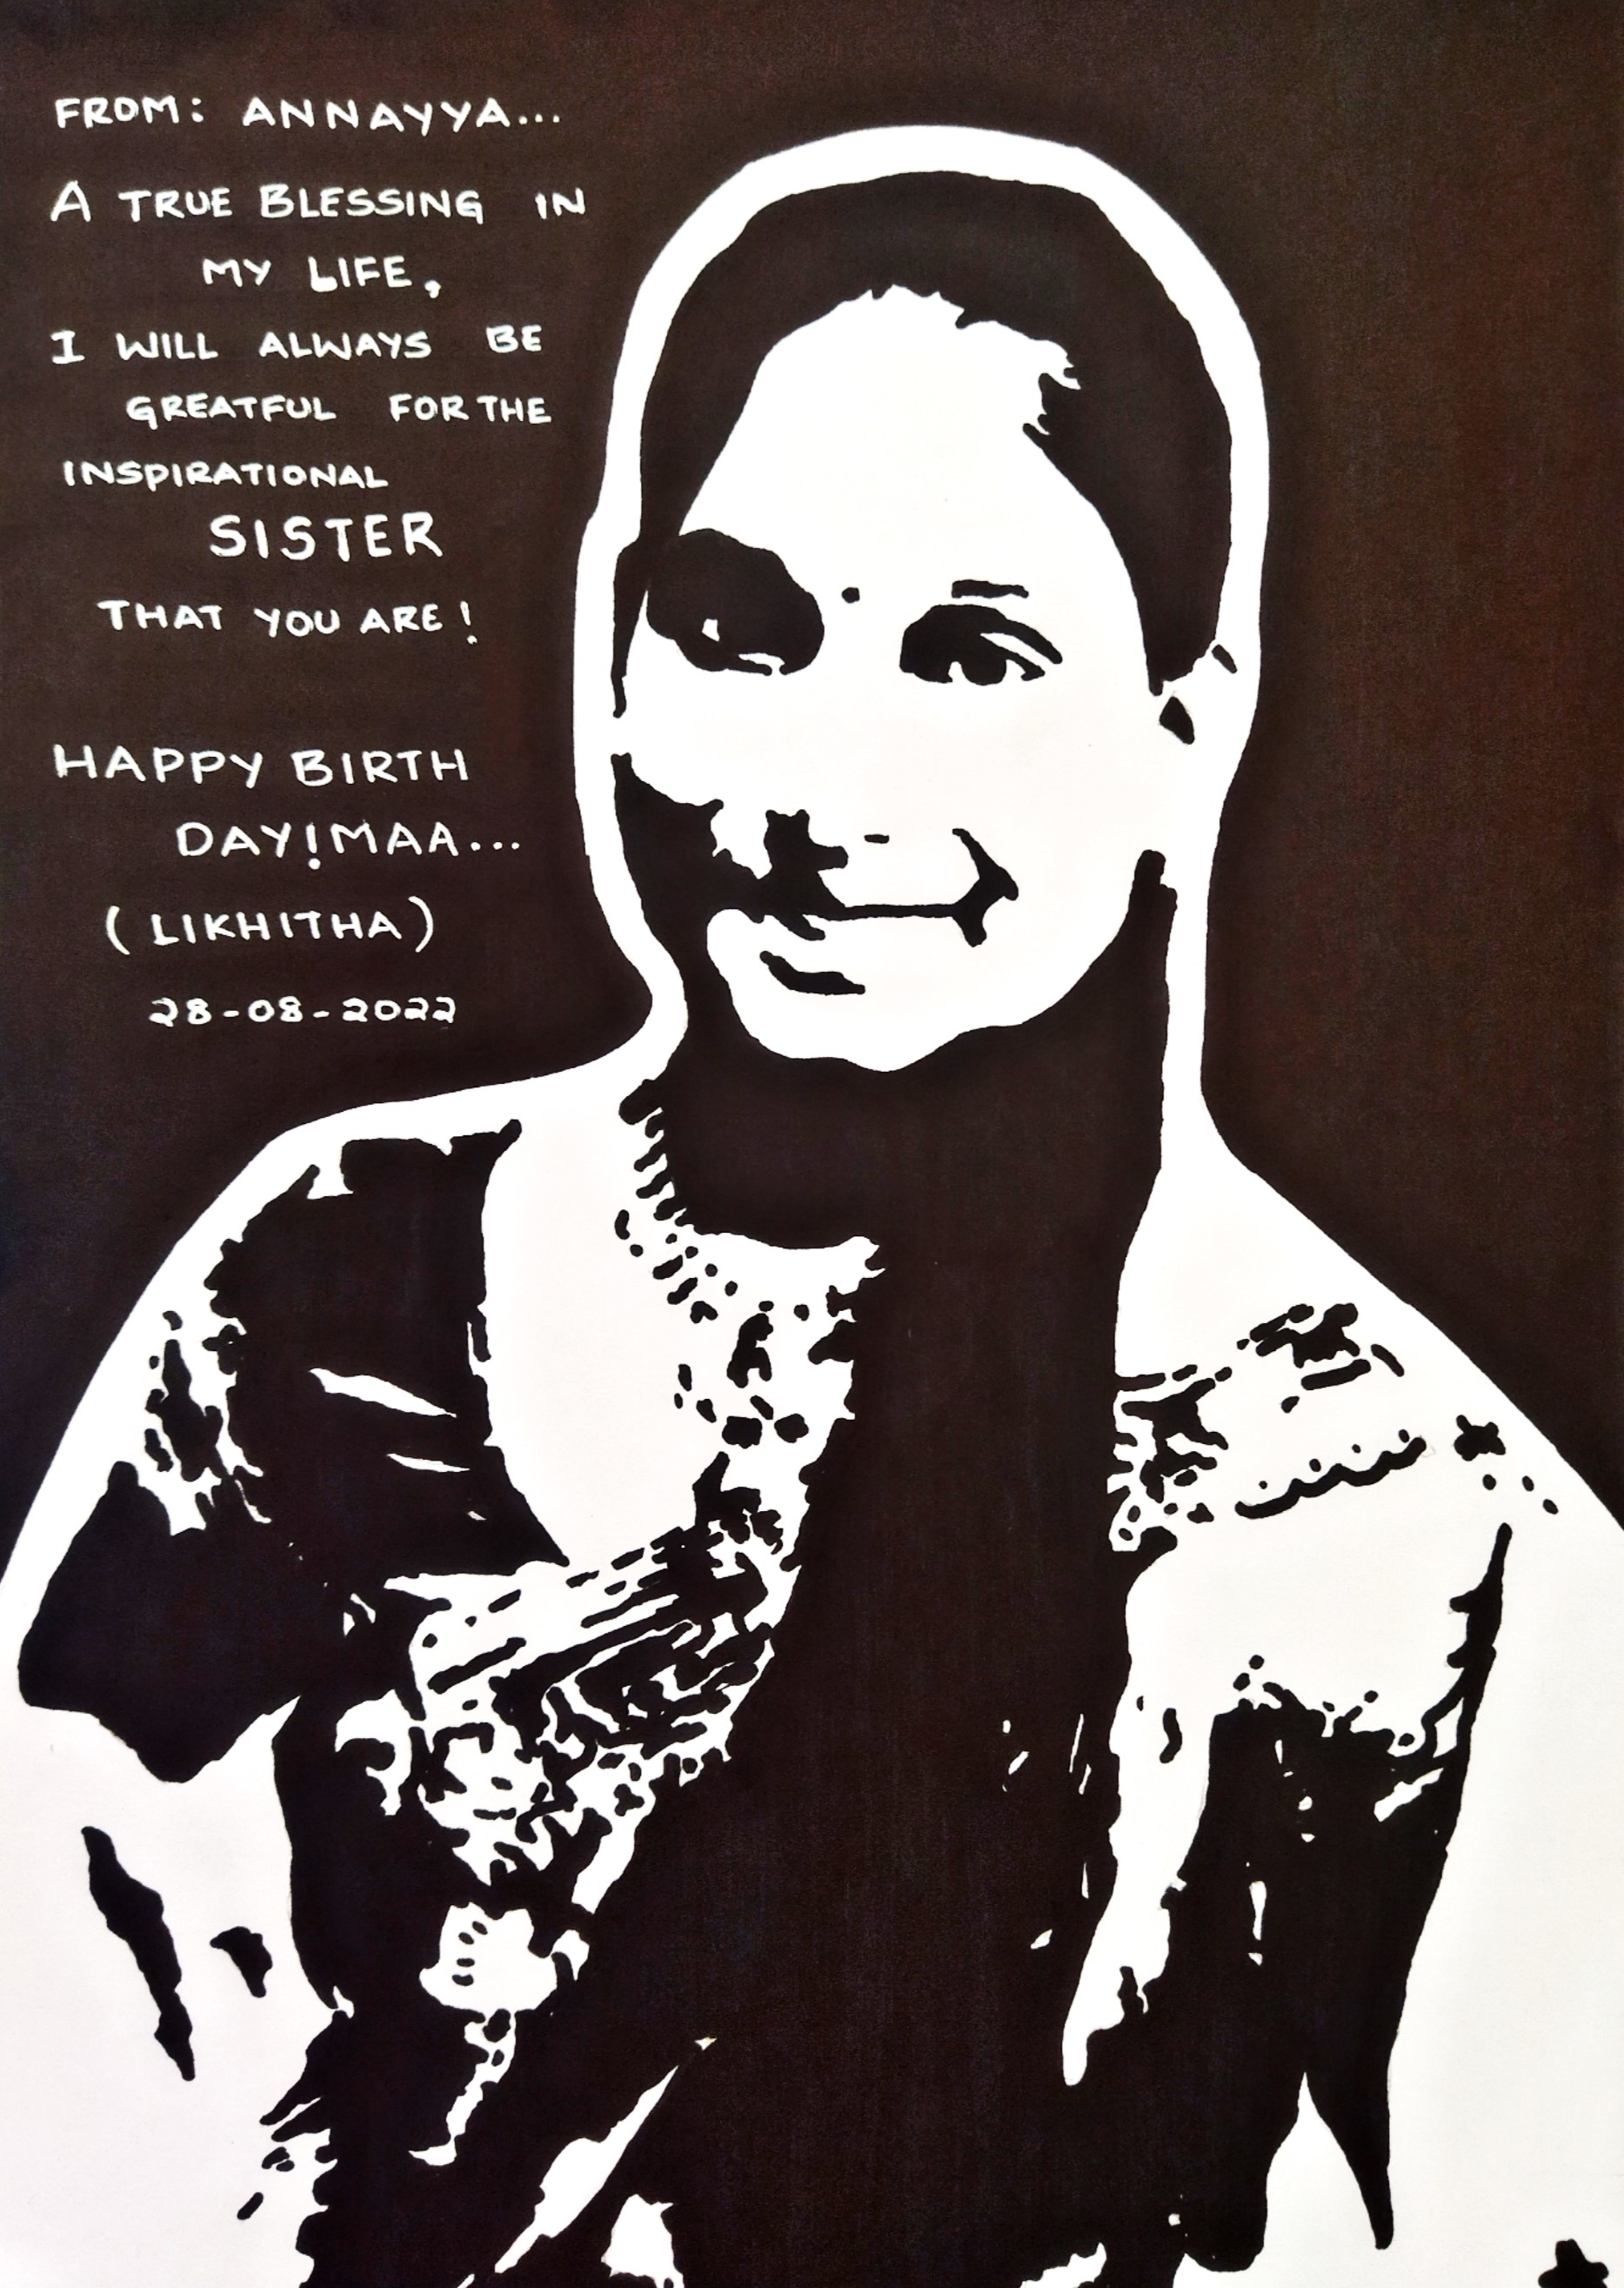 FROM: ANNAYYA...
A TRUE BLESSING IN
MY LIFE,
I WILL ALWAYS BE
GREATFUL FOR THE
INSPIRATIONAL
SISTER
THAT YOU ARE!
HAPPY BIRTH
DAY!MAA...
(LIKHITHA)
28-08-2022